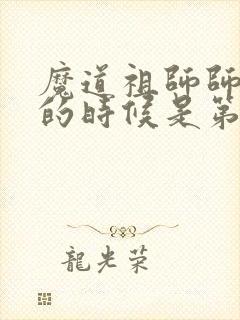 魔道祖師師
的時候是第
龍光荣